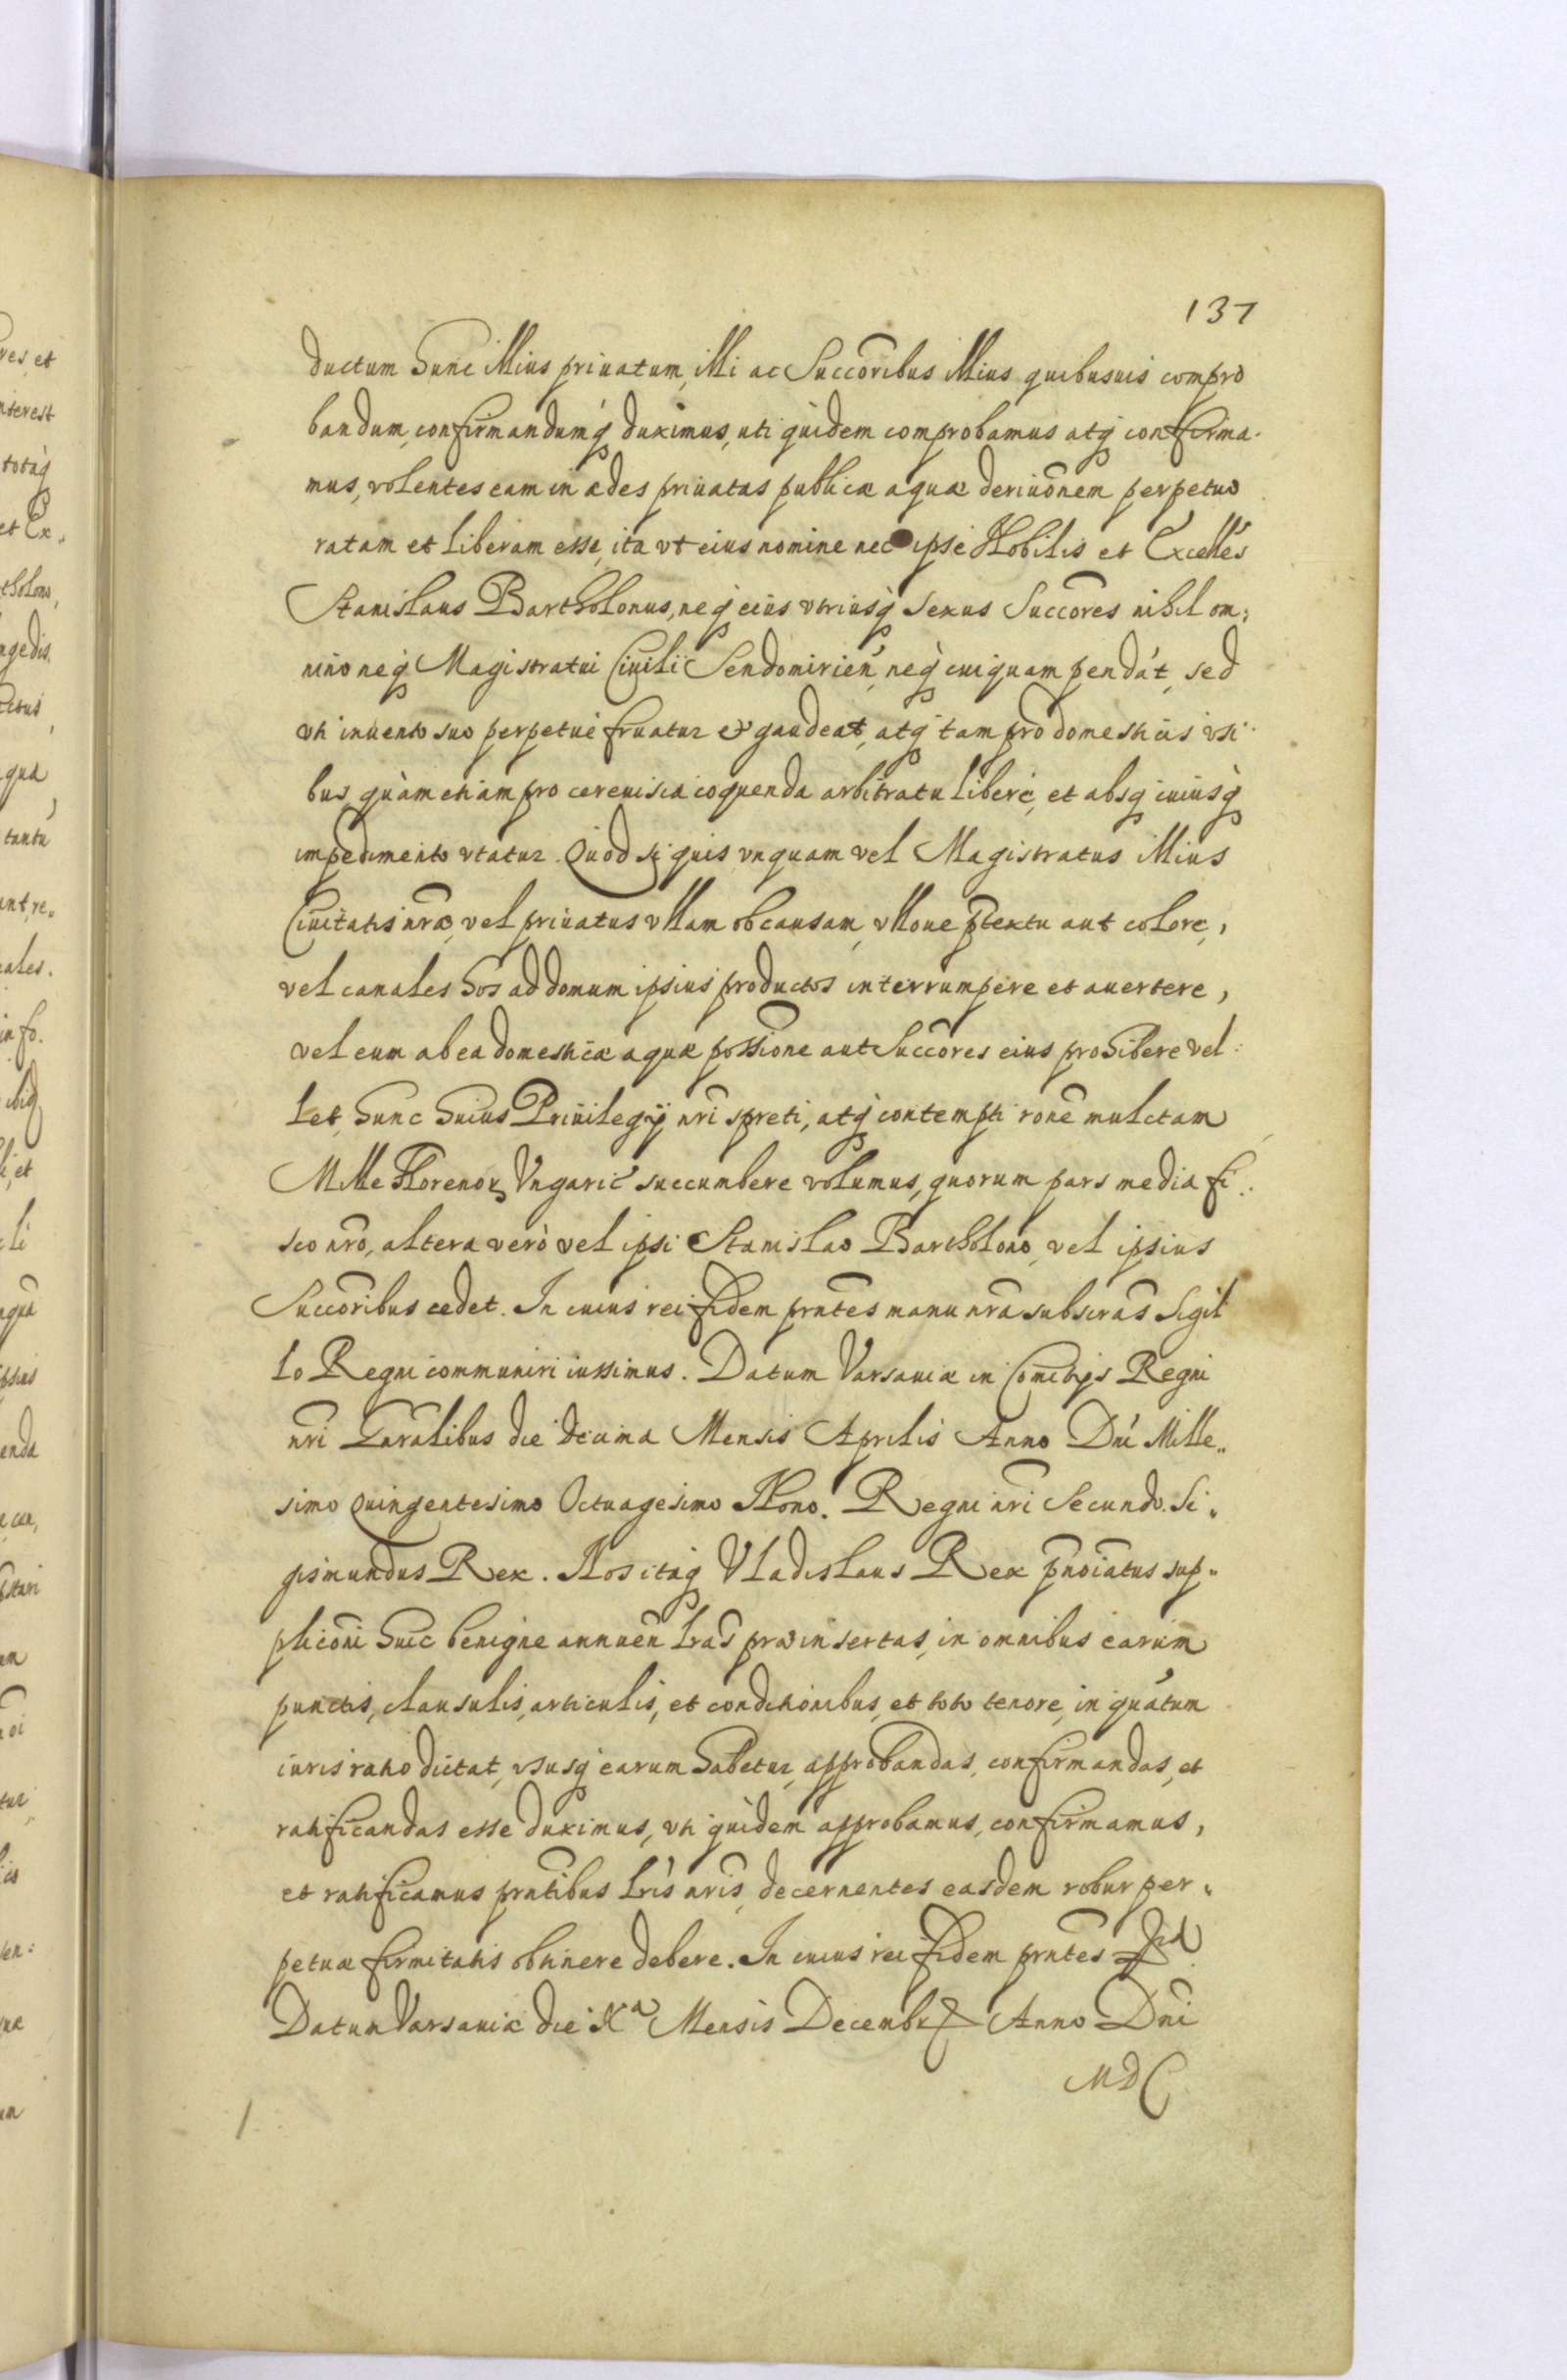 137
ductum hunc illius priuatum, illi ac Succōribus illius quibusuis compro
bandum, confirmandumq́ duximus, uti quidem comprobamus atq́ confirma-
mus, volentes eam in ædes priuatas publicæ aquæ deriuōnem perpetuo
ratam et liberam esse, ita vt eius nomine nec ipse Nobilis et Excellēs
Stanislaus Bartholonus, neq́ eius vtriusq́ sexus Succōres nihil om:
nino neq́ Magistratui Ciuili Sendomirien̄, neq́ cuiquam pendát, sed
vti inuento suo perpetuè fruatur et gaudeat, atq́ tam pro domesticis vsi-
bus, quàm etiam pro cereuisia coquenda arbitratu liberè, et absq́ cuiusq́
impedimento vtatur. Quod si quis vnquam vel Magistratus illius
Ciuitatis nr̄æ, vel priuatus vllam ob causam, vlloue p̄textu aut colore,
vel canales hos ad domum ipsius productos interrumpere et auertere,
vel eum ab ea domesticæ aquæ poss̄ione aut Succōres eius prohibere vel-
let, hunc huius Priuilegij nr̄i spreti, atq́ contempti rōne mulctam
Mille Florenor̄ Vngaric̄ succumbere volumus, quorum pars media fi-
sco nr̄o, altera verò vel ipsi Stanislao Bartholono, vel ipsius
Succōribus cedet. In cuius rei fidem prn̄tes manu nr̄a subscrās Sigil
lo Regni communiri iussimus. Datum Varsauiæ in Comitijs Regni
nr̄i Gn̄ralibus die decima Mensis Aprilis Anno Dn̄i Mille„
simo Quingentesimo Octuagesimo Nono. Regni nr̄i Secundo. Si„
gismundus Rex. Nos itaq́ Vladislaus Rex p̄noīatus sup„
plicōni huic benigne annuen̄ lr̄as præinsertas, in omnibus earum
punctis, clausulis, articulis, et conditionibus, et toto tenore, in quātum
iuris ratio dictat, vsusq́ earum habetur, approbandas, confirmandas, et
ratificandas esse duximus, vti quidem approbamus, confirmamus,
et ratificamus prn̄tibus lr̄is nr̄is, decernentes easdem robur per„
petuæ firmitatis obtinere debere. In cuius rei fidem prn̄tes
Datum Varsauiæ die Xa Mensis Decembr̄ Anno Dn̄i
MDC